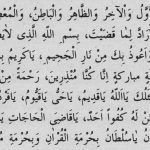 وَّلُ وَالْآخِرُ وَالظَّاهِرُ وَالْبَاطِنُ، وَالْمُعْ
رَادَّ لِمَا قَضَيْتَ، بِسْمِ اللهِ الَّذِى لَا
اَعُوذُ بِكَ مِنْ نَارِ الْجَحِيمِ، يَاكَرِيمُ يَ
لَةٍ مُبَارَكَةٍ اِنَّا كُنَّا مُنْذِرِينَ، رَحْمَةً مِنْ
كَ يَااَللهُ يَاقَدِيمُ، يَاحَىُّ يَاقَيُّومُ، يَاقَ
هُوَ، يَاكَافِىَ الْمُهِمَّاتِ، يَاقَاضِىَ الْحَاجَاتِ يَا
نُ يَاسُلْطَانُ بِحُرْمَةِ الْقُرْآنِ وَبِحُرْمَةِ